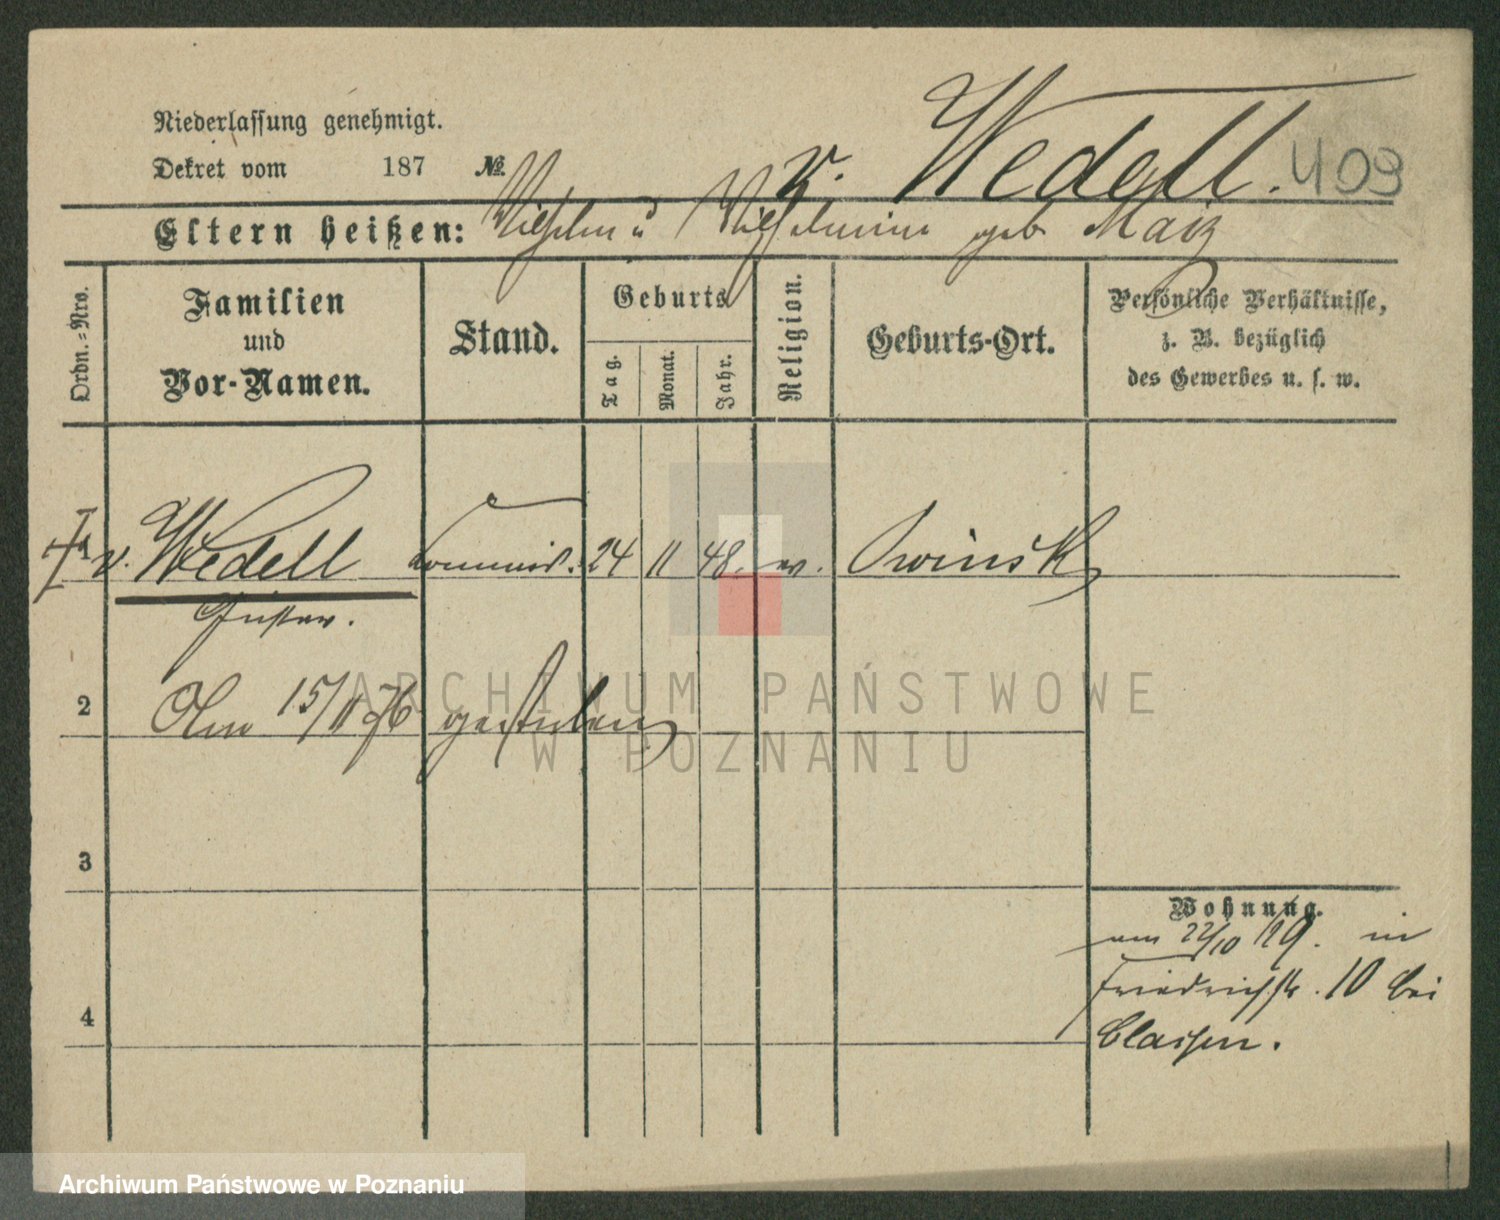 Niederlassung genehmigt.
Dekret vom 187 №
v. Wedell. 409
Eltern heißen: Wilhelm u Wilhelmine geb
Ordn.-Nro.
Familien und Vor-Namen.
Stand.
Geburts
Tag.
Monat.
Jahr.
Religion.
Geburts-Ort.
Persönliche Verhältnisse,
z. B. bezüglich
des Gewerbes u. s. w.
1 v. Wedell 24 11 48. Owinsk
Gustav.
2 Am 15/11 76 gestorben
3
Wohnung.
am 22/10 in
Friedrichstr. 10 bei
4
ARCHIWUM PAŃSTWOWE
W POZNANIU
Archiwum Państwowe w Poznaniu